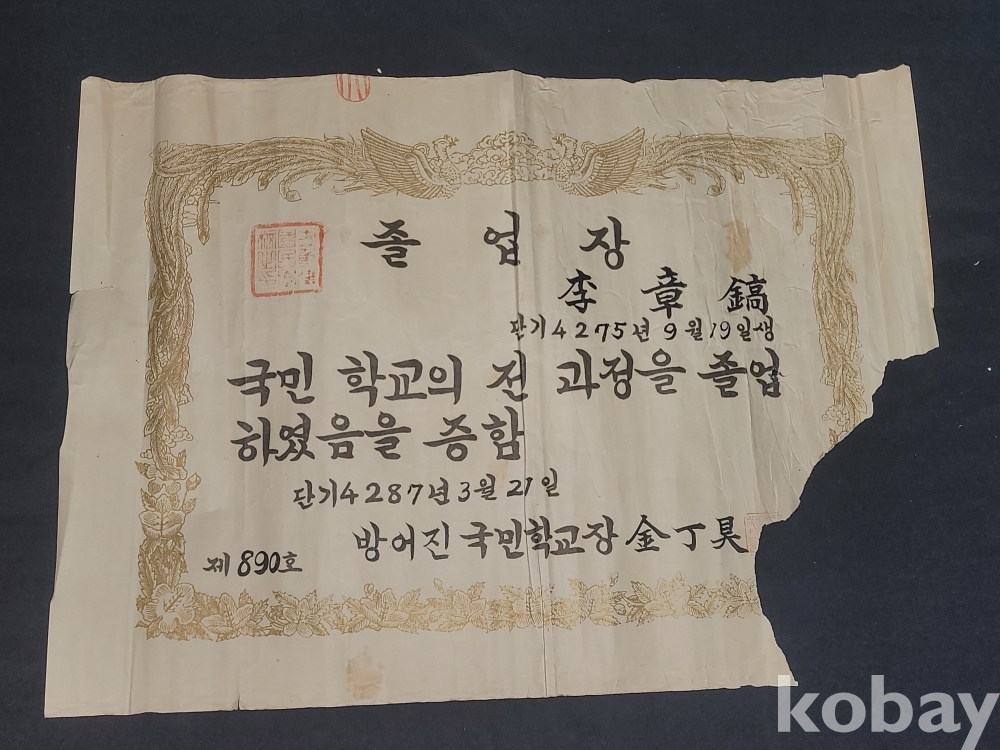 졸 업 장
李 章 鎬
단기4275년 9월 19일생
국민 학교의 전 과정을 졸업
하였음을 증함
단기4287년 3월 21일
방어진 국민학교장 金丁昊
제890호
kobay